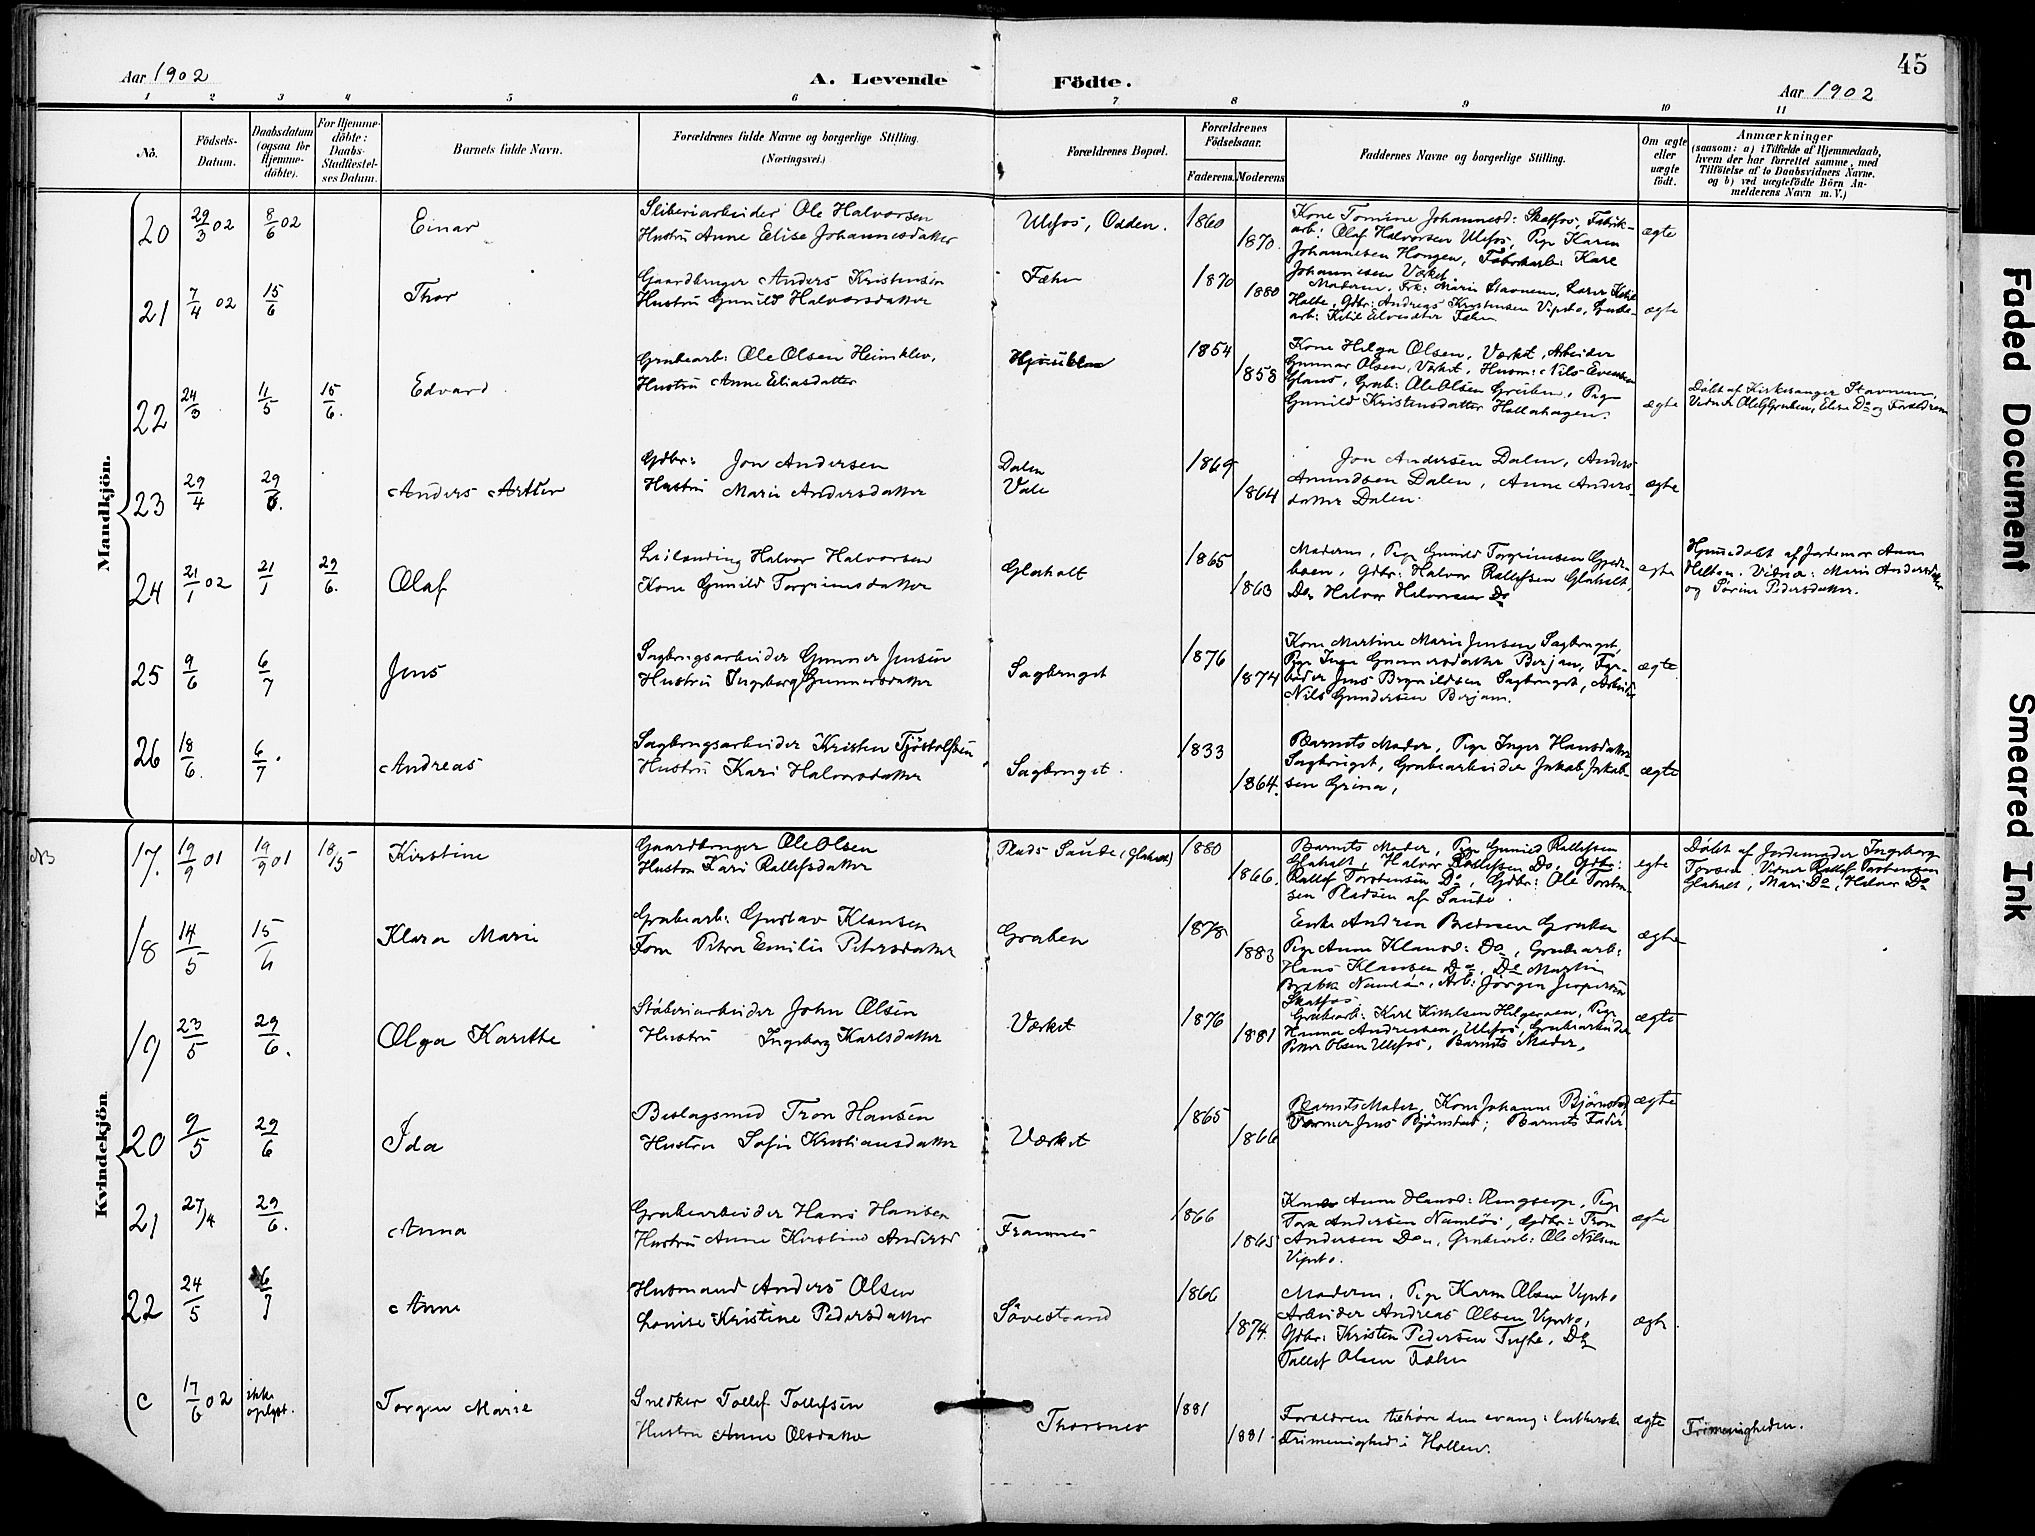 45
Aar 1902
A. Levende Födte.
Aar 1902
1 2 3 4 5 6 7 8 9 10 11
No.
Födsels-
Datum.
Daabsdatum
(ogsaa for
Hjemme-
döbte).
For Hjemme-
döbte:
Daabs-
Stadfæstel-
ses Datum.
Barnets fulde Navn.
Forældrenes fulde Navne og borgerlige Stilling.
(Næringsvei.)
Forældrenes Bopæl.
Forældrenes
Födselsaar.
Faderens. Moderens.
Faddernes Navne og borgerlige Stilling.
Om ægte
eller
uægte
födt.
Anmærkninger
(saasom: a) i Tilfælde af Hjemmedaab,
hvem der har forrettet samme, med
Tilföielse af to Daabsvidners Navne.
og b) ved uægtefödte Börn An-
melderens Navn m. V.)
Mandkjön.
20 29/3 02 8/6 02 Einar
Sliberiarbeider Ole Halvorsen
Hustru Anne Elise Johannesdatter
Ulefos, Odden. 1860 1870.
Kone Tomine Johannesd: Skotfos, Fabrik-
arb: Olaf Halvorsen Ulefos, Pige Karen
Johannesen Hongen, Fabrikarb: Karl
Johannesen Værket
ægte
21 7/4 02 15/6 Thor
Gaardbruger Anders Kristensen
Hustru Gunild Halvorsdatter
Fæhn 1870 1880
Moderen, Frk: Marie Stavnem, Lærer Ketil
Halte, Gdbr: Andreas Kristensen Vipeto, Grube-
arb: Ketil Fæhn
ægte
22 24/3 11/5 15/6. Edvard
Grubearb: Ole Olsen Heimklev,
Hustru Anne Eliasdatter
1854 1858
Kone Helga Olsen, Værket, Arbeider
Gunnar Olsen, Værket, Husm: Nils Evensen
Glaus, Grub: Ole Olsen Gruben, Pige
Gunild Kristensdatter Hollahagen.
ægte
Döbt af Kirkesanger Stavnem,
Vidner Ole G Gruben, Elise Do og Forældrene
23 29/4 29/6. Anders Arthur
Gdbr: Jon Andersen
Hustru Marie Andersdatter
Dalen
Vale
1869 1864
Jon Andersen Dalen, Anders
Amundsen Dalen, Anne Anders-
datter Dalen.
ægte
24 21/1 02 21/1 29/6. Olaf
Leilending Halvor Halvorsen
Kone Gunild Torgrimsdatter
Glahalt 1865 1863
Moderen, Pige Gunild Torgrimsen
Gdbr: Halvor Rollefsen Glahalt,
Do Halvor Halvorsen Do
ægte
Hjemmedöbt af Jordemor Anne
Helten. Vidner: Marie Andersdatter
og Sörine Pedersdatter.
25 9/6 6/7 Jens
Sagbrugsarbeider Gunner Jensen
Hustru Ingeborg Gunnersdatter
Sagbruget 1876 1874
Kone Martine Marie Jensen Sagbruget,
Pige Inga Gunnersdatter Berjan,
Jens Brynildsen Sagbruget, Arbeider
Nils Gundersen Berjan.
ægte
26 18/6. 6/7. Andreas
Sagbrugsarbeider Kristen Tjöstolfsen
Hustru Kari Halvorsdatter
Sagbruget. 1833 1864.
Barnets Moder, Pige Inger Hansdatter
Sagbruget, Grubearbeider Jakob Jakob-
sen Grina,
ægte
Kvindekjön
NB
17. 19/9 01 19/9 01 18/5 Kirstine
Gaardbruger Ole Olsen
Hustru Kari Rollefsdatter
Plads Saude (Glahalt) 1880 1866.
Barnets Moder, Pige Gunild Rollefsen
Glahalt, Halvor Rollefsen Do, Gdbr:
Rollef Torstensen Do, Gdbr: Ole Torsten-
sen Pladsen af Saude.
egte
Döbt af Jordemoder Ingeborg
Vidner Rollef Torstensen
Glahalt, Mari Do, Halvor Do
18 14/5 15/6 Klara Marie
Grubearb: Gustav Klausen
Kone Petra Emilie Petersdatter
Gruben 1878 1883
Enke Andrea Gruben
Pige Anna Klausd: Do, Grubearb:
Hans Klausen Do, Do Martin
Namlös, Arb: Jörgen Jespersen
Skotfos.
ægte
19 23/5 29/6. Olga Karethe
Stöberiarbeider John Olsen
Hustru Ingeborg Karlsdatter
Værket 1876 1881
Grubearb: Karl Kittilsen Helgeraen, Pige
Hanna Andreassen, Ulefos, Grubearbeider
Peter Olsen Ulefos, Barnets Moder,
ægte
20 9/5 29/6 Ida
Beslagsmed Tron Hansen
Hustru Sofie Kristiansdatter
Værket 1865 1866
Barnets Moder, Kone Johanne Björnstad
Former Jens Björnstad, Barnets Fader.
ægte
21 27/4 29/6. Anna
Grubearbeider Hans Hansen
Hustru Anne Kirstine Andersd
Framnes 1866 1865
Kone Anne Hansd: Ringsevje, Pige
Tora Andersen Namlös, Gdbr: Tron
Andersen Do, Grubearb: Ole Nilsen
Vipeto.
ægte
22 24/5 6/7 Anne
Husmand Anders Olsen
Louise Kristine Pedersdatter
Sövestrand 1866 1874.
Moderen, Pige Karen Olsen Vipeto
Arbeider Andreas Olsen Vipeto,
Gdbr: Kristen Pedersen Tufte, Do
Tollef Olsen Fæhn
ægte
C 17/6 02 ikke
oplyst. Torgun Marie
Snedker Tollef Tollefsen
Hustru Anne Olsdatter
Thorsnes 1881 1881.
Forældren tilhöre den evang: lutherske
Frimenighed i Hollen.
ægte
Frimenigheden.
Faded Document
Smeared Ink